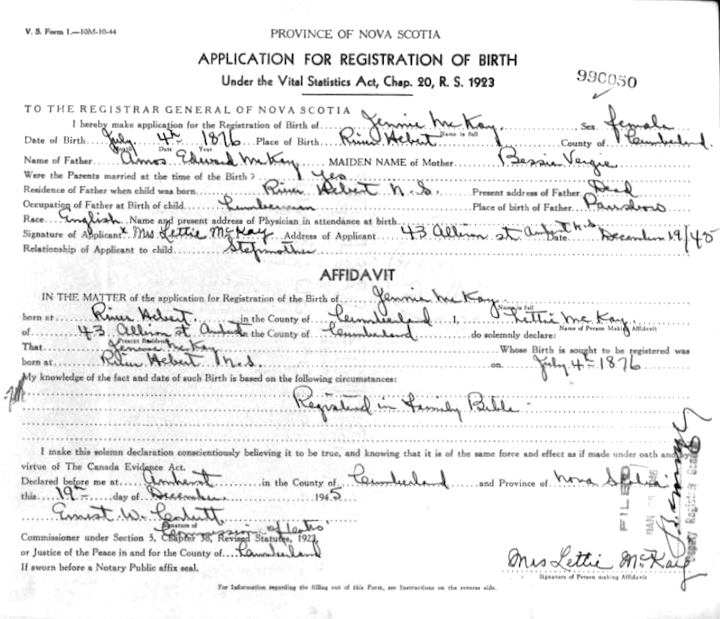 V. S. Form 1.—10M-10-44
PROVINCE OF NOVA SCOTIA
APPLICATION FOR REGISTRATION OF BIRTH
Under the Vital Statistics Act, Chap. 20, R. S. 1923
990050
TO THE REGISTRAR GENERAL OF NOVA SCOTIA
I hereby make application for the Registration of Birth of Jennie McKay Sex female
Name in full
Date of Birth July 4th 1876 Place of Birth River Hebert County of Cumberland
Month Date Year
Name of Father Amos Edward McKay MAIDEN NAME of Mother Bessie
Were the Parents married at the time of the Birth? Yes
Residence of Father when child was born River Hebert N.S. Present address of Father Dead
Occupation of Father at Birth of child Lumberman Place of birth of Father Parrsboro
Race English Name and present address of Physician in attendance at birth
Signature of Applicant x Mrs Lettie McKay Address of Applicant 43 Albion st. Amherst N.S. Date December 19/45
Relationship of Applicant to child Stepmother
AFFIDAVIT
IN THE MATTER of the application for Registration of the Birth of Jennie McKay
Name in full
born at River Hebert in the County of Cumberland I, Lettie McKay
Name of Person Making Affidavit
of 43 Albion st Amherst in the County of Cumberland do solemnly declare:
Present Residence
That Jennie McKay Whose Birth is sought to be registered was
born at River Hebert N.S. on July 4th 1876
My knowledge of the fact and date of such Birth is based on the following circumstances:
Registered in Family Bible
I make this solemn declaration conscientiously believing it to be true, and knowing that it is of the same force and effect as if made under oath and by
virtue of The Canada Evidence Act.
Declared before me at Amherst in the County of Cumberland and Province of Nova Scotia
this 19th day of December 1945
Ernest W.
Signature of
Commissioner under Section 5, Chapter 38, Revised Statutes, 1923
or Justice of the Peace in and for the County of Cumberland
If sworn before a Notary Public affix seal.
Mrs Lettie McKay
Signature of Person making Affidavit
FILED
Deputy Registrar General
For Information regarding the filling out of this Form, see Instructions on the reverse side.